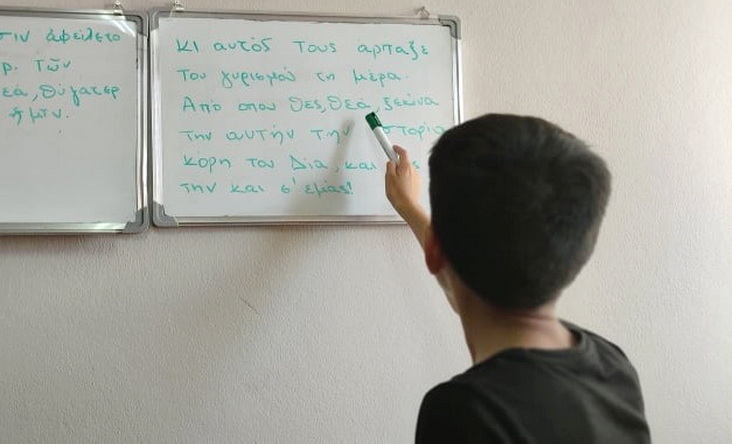 τιν ἀφείλετο
ρ. τῶν
εά, θύγατερ
ἡμῖν.
κι αυτός τους άρπαξε
του γυρισμού τη μέρα.
Από οπου θες, θεά, ξεκίνα
την αυτήν την στορία
κόρη του Δία, και
την και σ' εμάς!